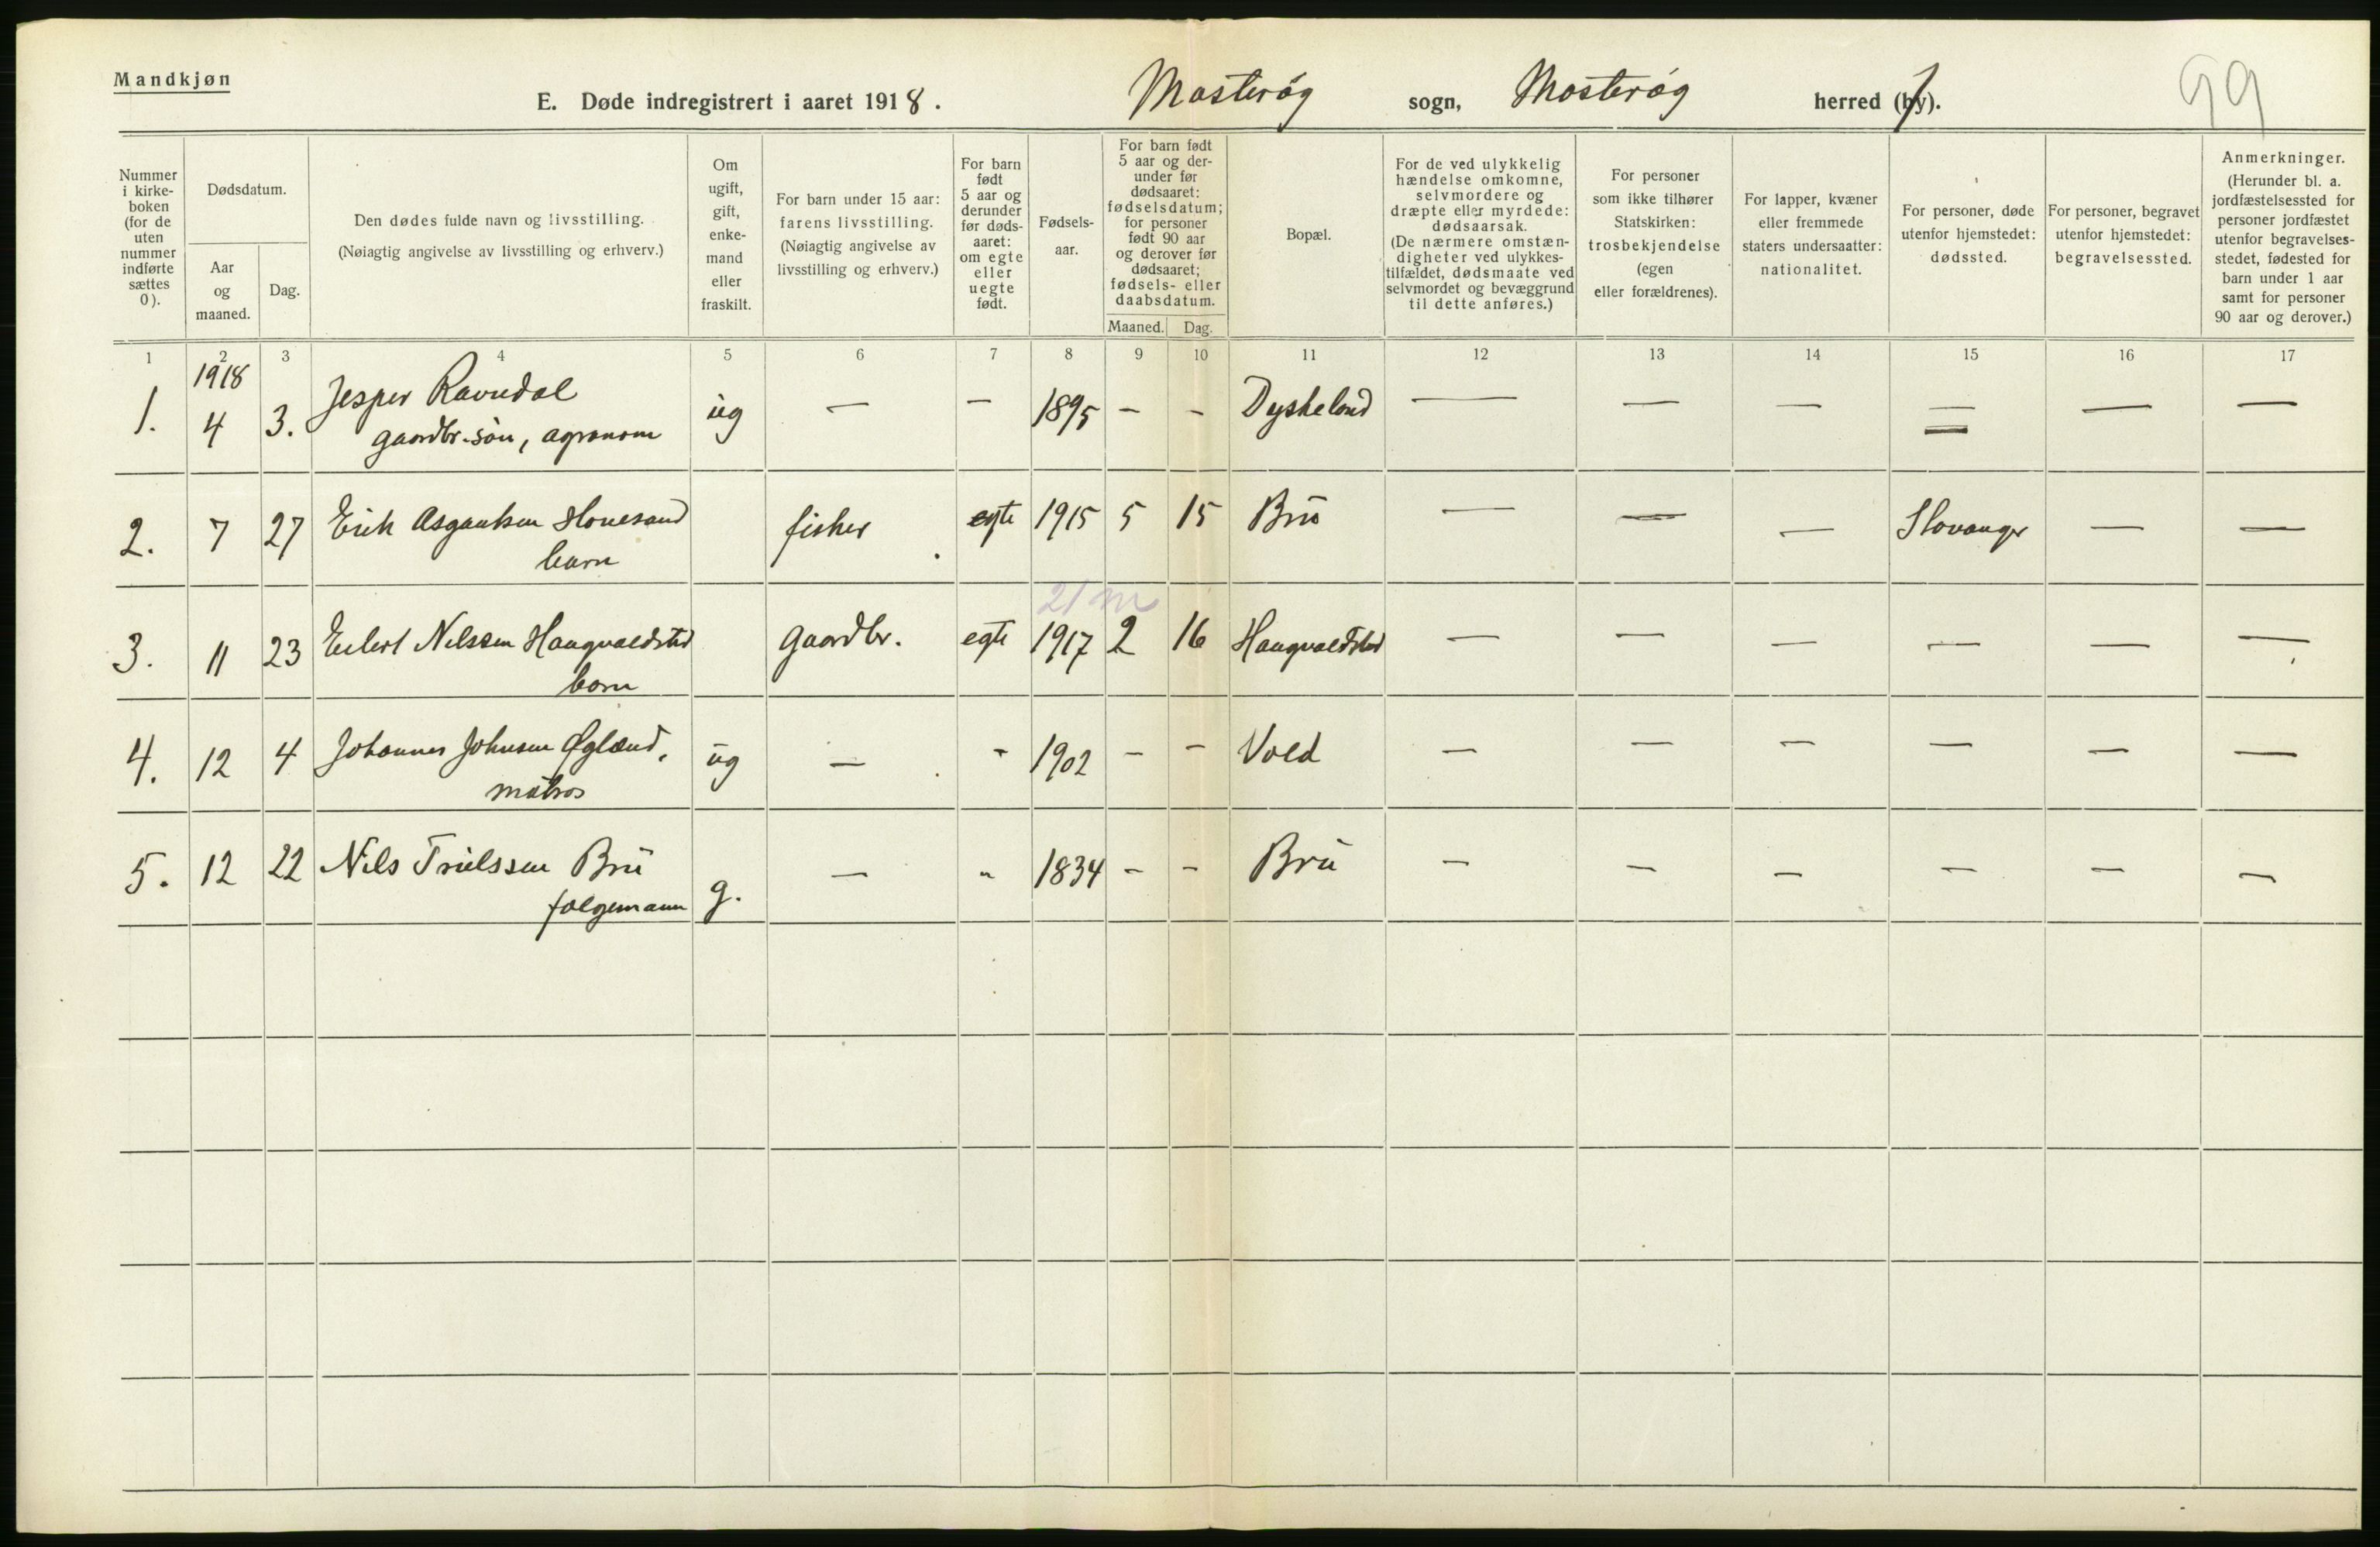 Mandkjøn
E. Døde indregistrert i aaret 1918. Mosterøy sogn, Mosterøy herred (by). 99
Nummer i kirke-boken (for de uten nummer indførte sættes 0).
Dødsdatum.
Aar og maaned.
Dag.
Den dødes fulde navn og livsstilling.
(Nøiagtig angivelse av livsstilling og erhverv.)
Om ugift, gift, enke-mand eller fraskilt.
For barn under 15 aar: farens livsstilling.
(Nøiagtig angivelse av livsstilling og erhverv.)
For barn født 5 aar og derunder før døds-aaret: om egte eller uegte født.
Fødsels-aar.
For barn født 5 aar og der-under før dødsaaret: fødselsdatum; for personer født 90 aar og derover før dødsaaret; fødsels- eller daabsdatum.
Maaned.
Dag.
Bopæl.
For de ved ulykkelig hændelse omkomne, selvmordere og dræpte eller myrdede: dødsaarsak.
(De nærmere omstæn-digheter ved ulykkes-tilfældet, dødsmaate ved selvmordet og bevæggrund til dette anføres.)
For personer som ikke tilhører Statskirken: trosbekjendelse (egen eller forældrenes).
For lapper, kvæner eller fremmede staters undersaatter: nationalitet.
For personer, døde utenfor hjemstedet: dødssted.
For personer, begravet utenfor hjemstedet: begravelsessted.
Anmerkninger.
(Herunder bl. a. jordfæstelsessted for personer jordfæstet utenfor begravelses-stedet, fødested for barn under 1 aar samt for personer 90 aar og derover.)
1 2 3 4 5 6 7 8 9 10 11 12 13 14 15 16 17
1918
1. 4 3. Jesper Ravndal ug — — 1895 - - Dyskeland — — — — — —
gaardbr.søn, agronom
2. 7 27 Erik Asgautsen Hovesand fisker egte 1915 5 15 Bru — — — Stavanger — —
barn
21 m
3. 11 23 Eilert Nilssen Haugvaldstad gaardbr. egte 1917 2 16 Haugvaldstad — — — — — —
barn
4. 12 4 Johannes Johnsen Øglænd, ug — - 1902 - - Vold — — — — — —
matros
5. 12 22 Nils Truelssen Bru g. — " 1834 - - Bru — — — — — —
følgemann